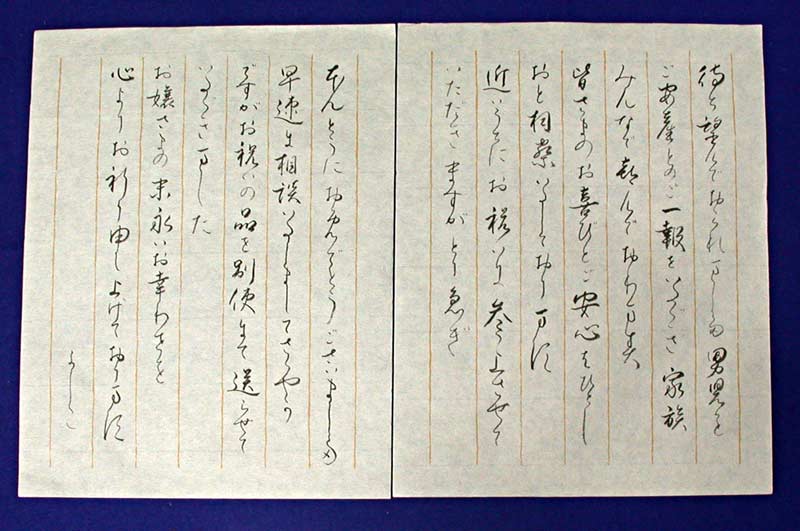 待ち望んでおられました男児を
ご安産とのご一報をいただき 家族
みんなで喜んでおります
皆さまのお喜びとご安心もひとし
おと拝察いたしております
近いうちにお祝いに参上させて
いただきますが とり急ぎ
ほんとうにおめでとうございました
早速に相談いたしまして ささやか
ですがお祝いの品を別便にて送らせて
いただきました
お嬢さまの末永いお幸わせを
心よりお祈り申し上げております